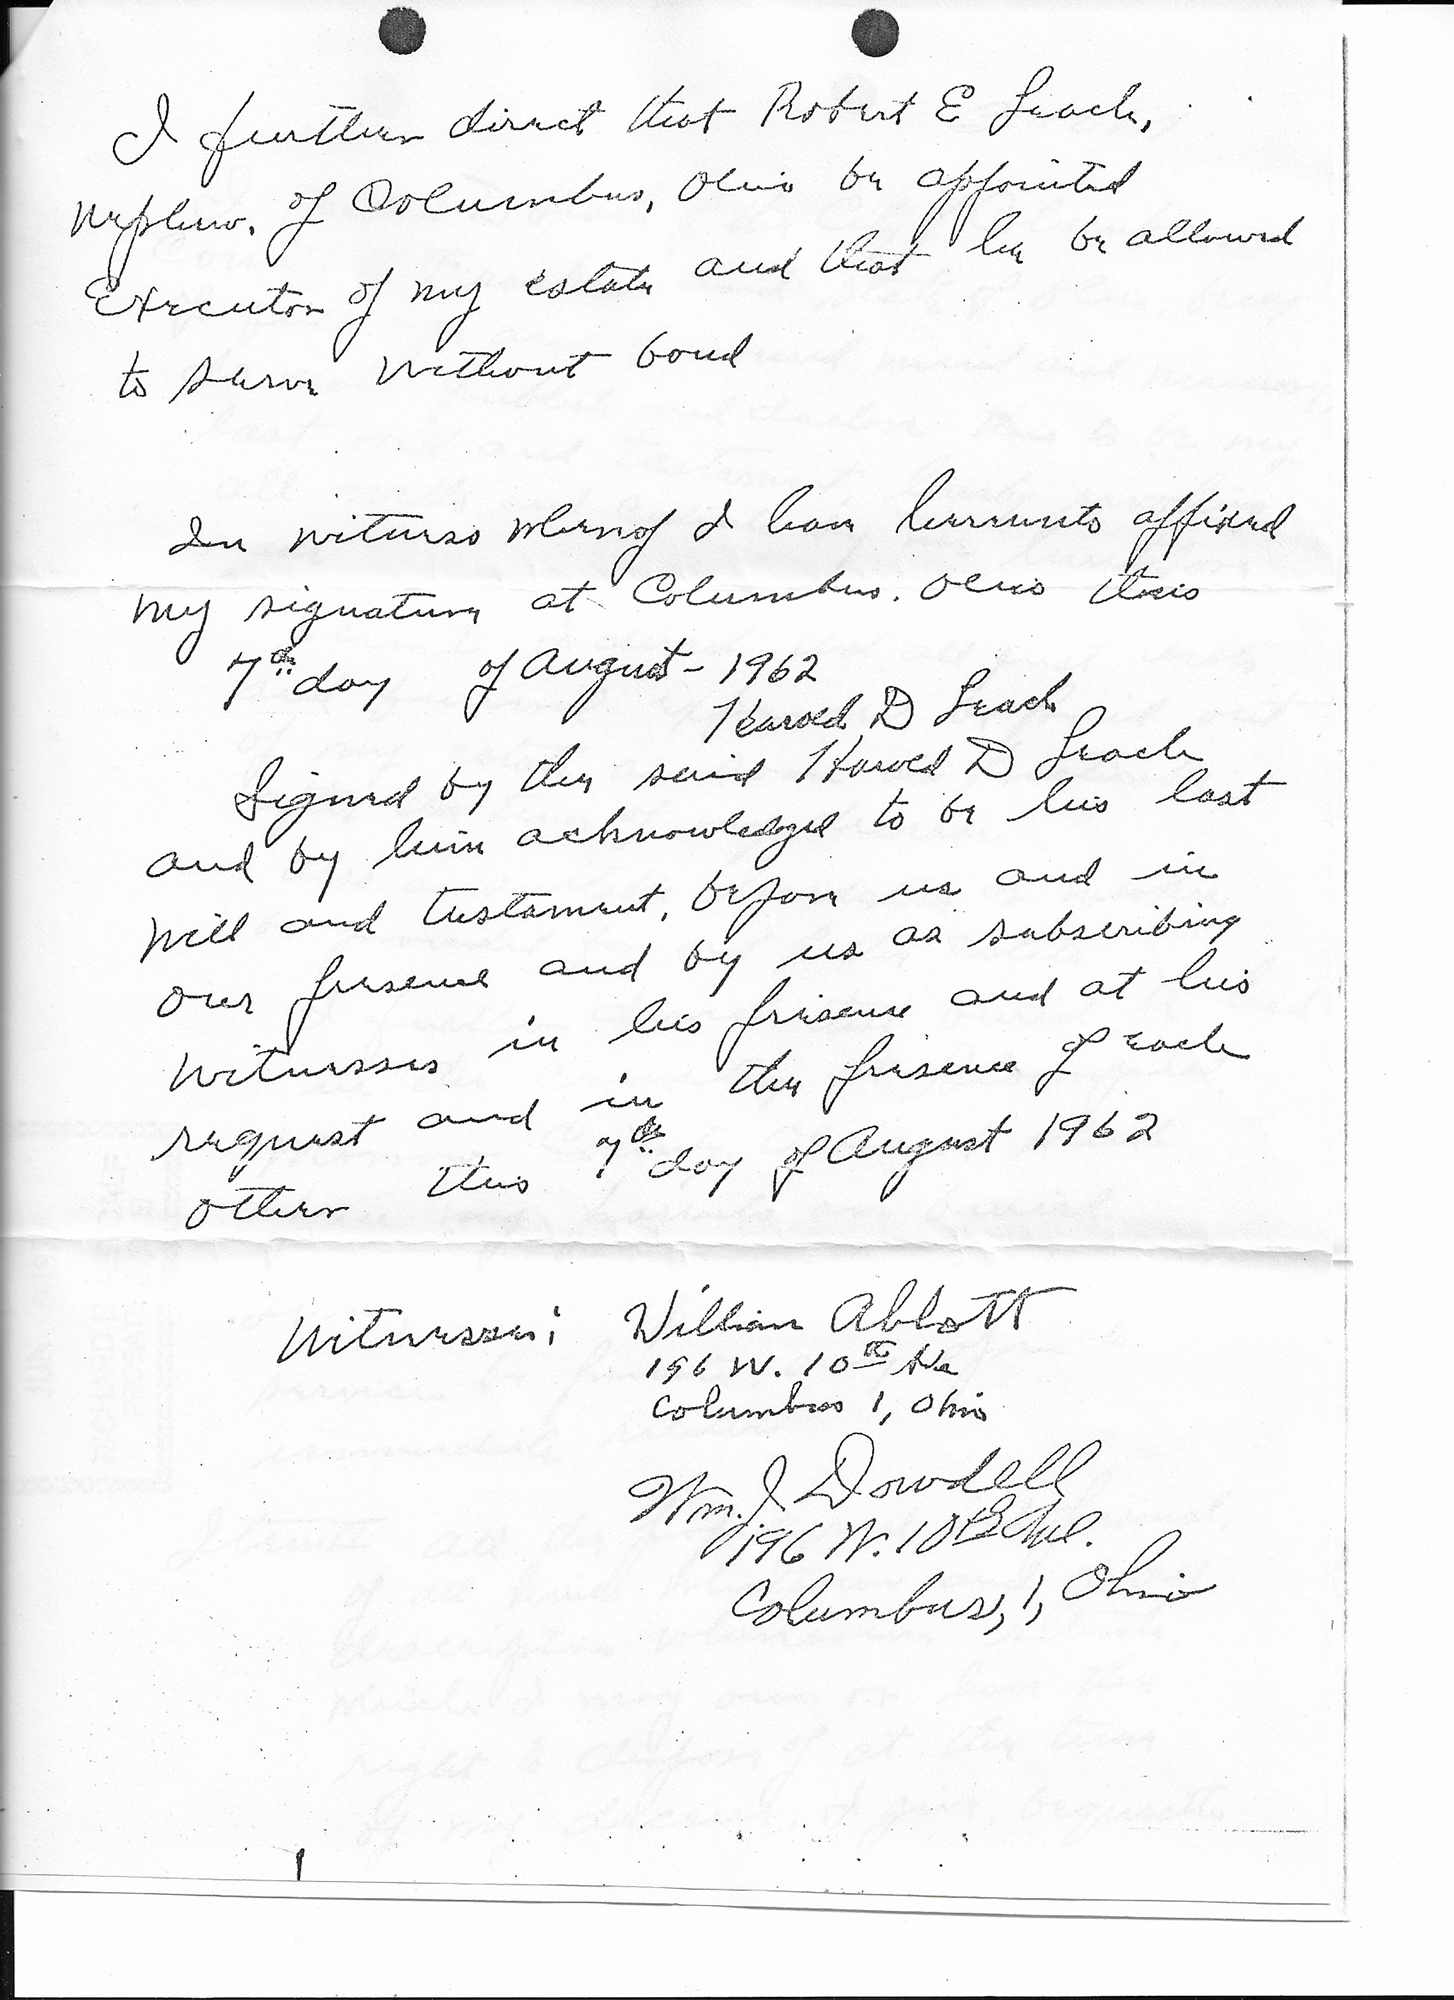 I further direct that Robert E Leach,
Nephew, of Columbus, Ohio be appointed
Executor of my estate and that he be allowed
to serve without bond
In witness whereof I have hereunto affixed
my signature at Columbus, Ohio this
7th day of August - 1962
Harold D Leach
Signed by the said Harold D Leach
and by him acknowledged to be his last
will and testament, before us and in
our presence and by us as subscribing
witnesses in his presence and at his
request and in the presence of each
other this 7th day of August 1962
Witnesses: William Abbott
196 W. 10th Av
Columbus 1, Ohio
Wm. J. Dowdell
196 W. 10th Ave.
Columbus, 1, Ohio